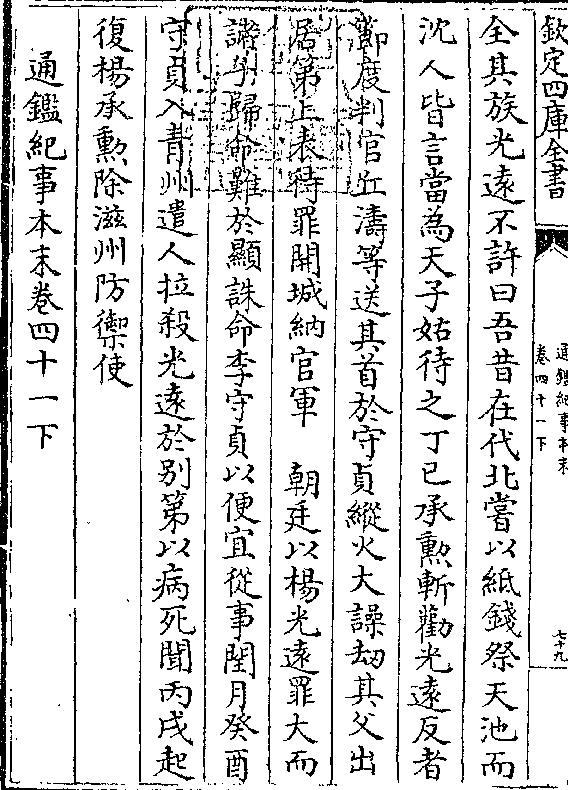 欽定四庫全書
通鑑紀事本末
卷四十一下
七十九
全其族光遠不許曰吾昔在代北嘗以紙錢祭天池而
沈人皆言當為天子姑待之丁巳承勲斬勸光遠反者
節度判官丘濤等送其首於守貞縱火大譟劫其父出
居第上表待罪開城納官軍　朝廷以楊光遠罪大而
諸子歸命難於顯誅命李守貞以便宜從事閏月癸酉
守貞入青州遣人拉殺光遠於别第以病死聞丙戌起
復楊承勲除滋州防禦使
通鑑紀事本末卷四十一下